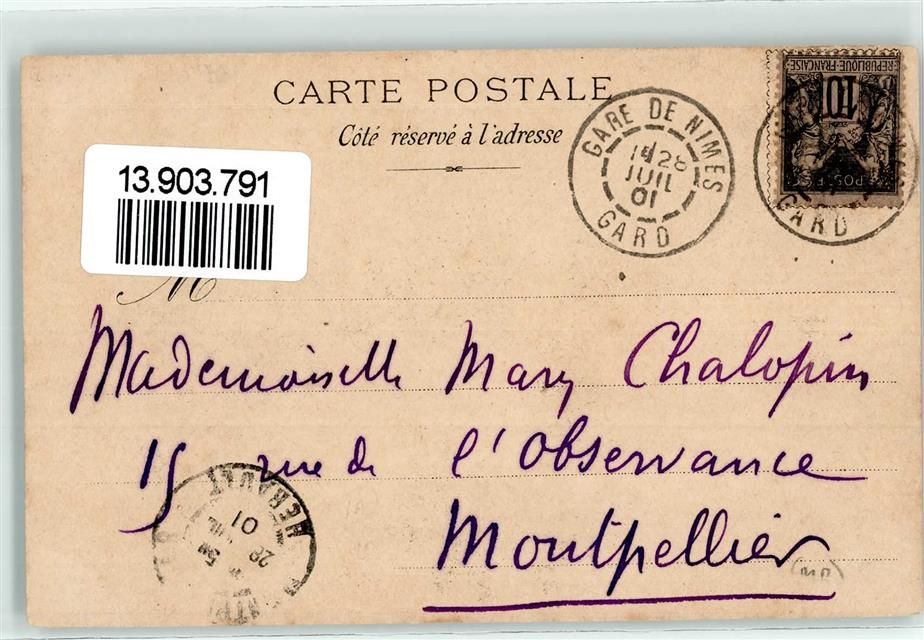 CARTE POSTALE
Côté réservé à l'adresse
13.903.791
GARE DE NIMES
28
JUIL
01
GARD
REPUBLIQUE FRANÇAISE
10
GARD
M
Mademoiselle Mary Chalopin
15 rue de l'Observance
Montpellier
HERAULT
28
01